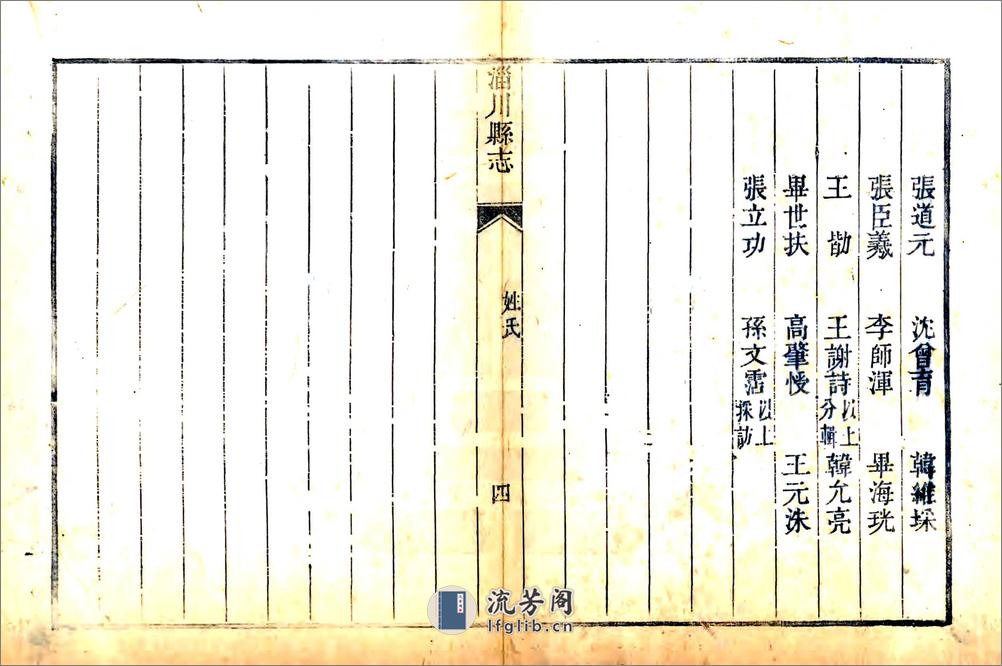 張道元 沈曾育 韓維垛
張臣羲 李師渾 畢海珖
王勛 王謝詩以上分輯 韓允亮
畢世扶 高肇慢 王元洙
張立功 孫文霑以上採訪
淄川縣志 姓氏 四
流芳阁
lfglib.cn